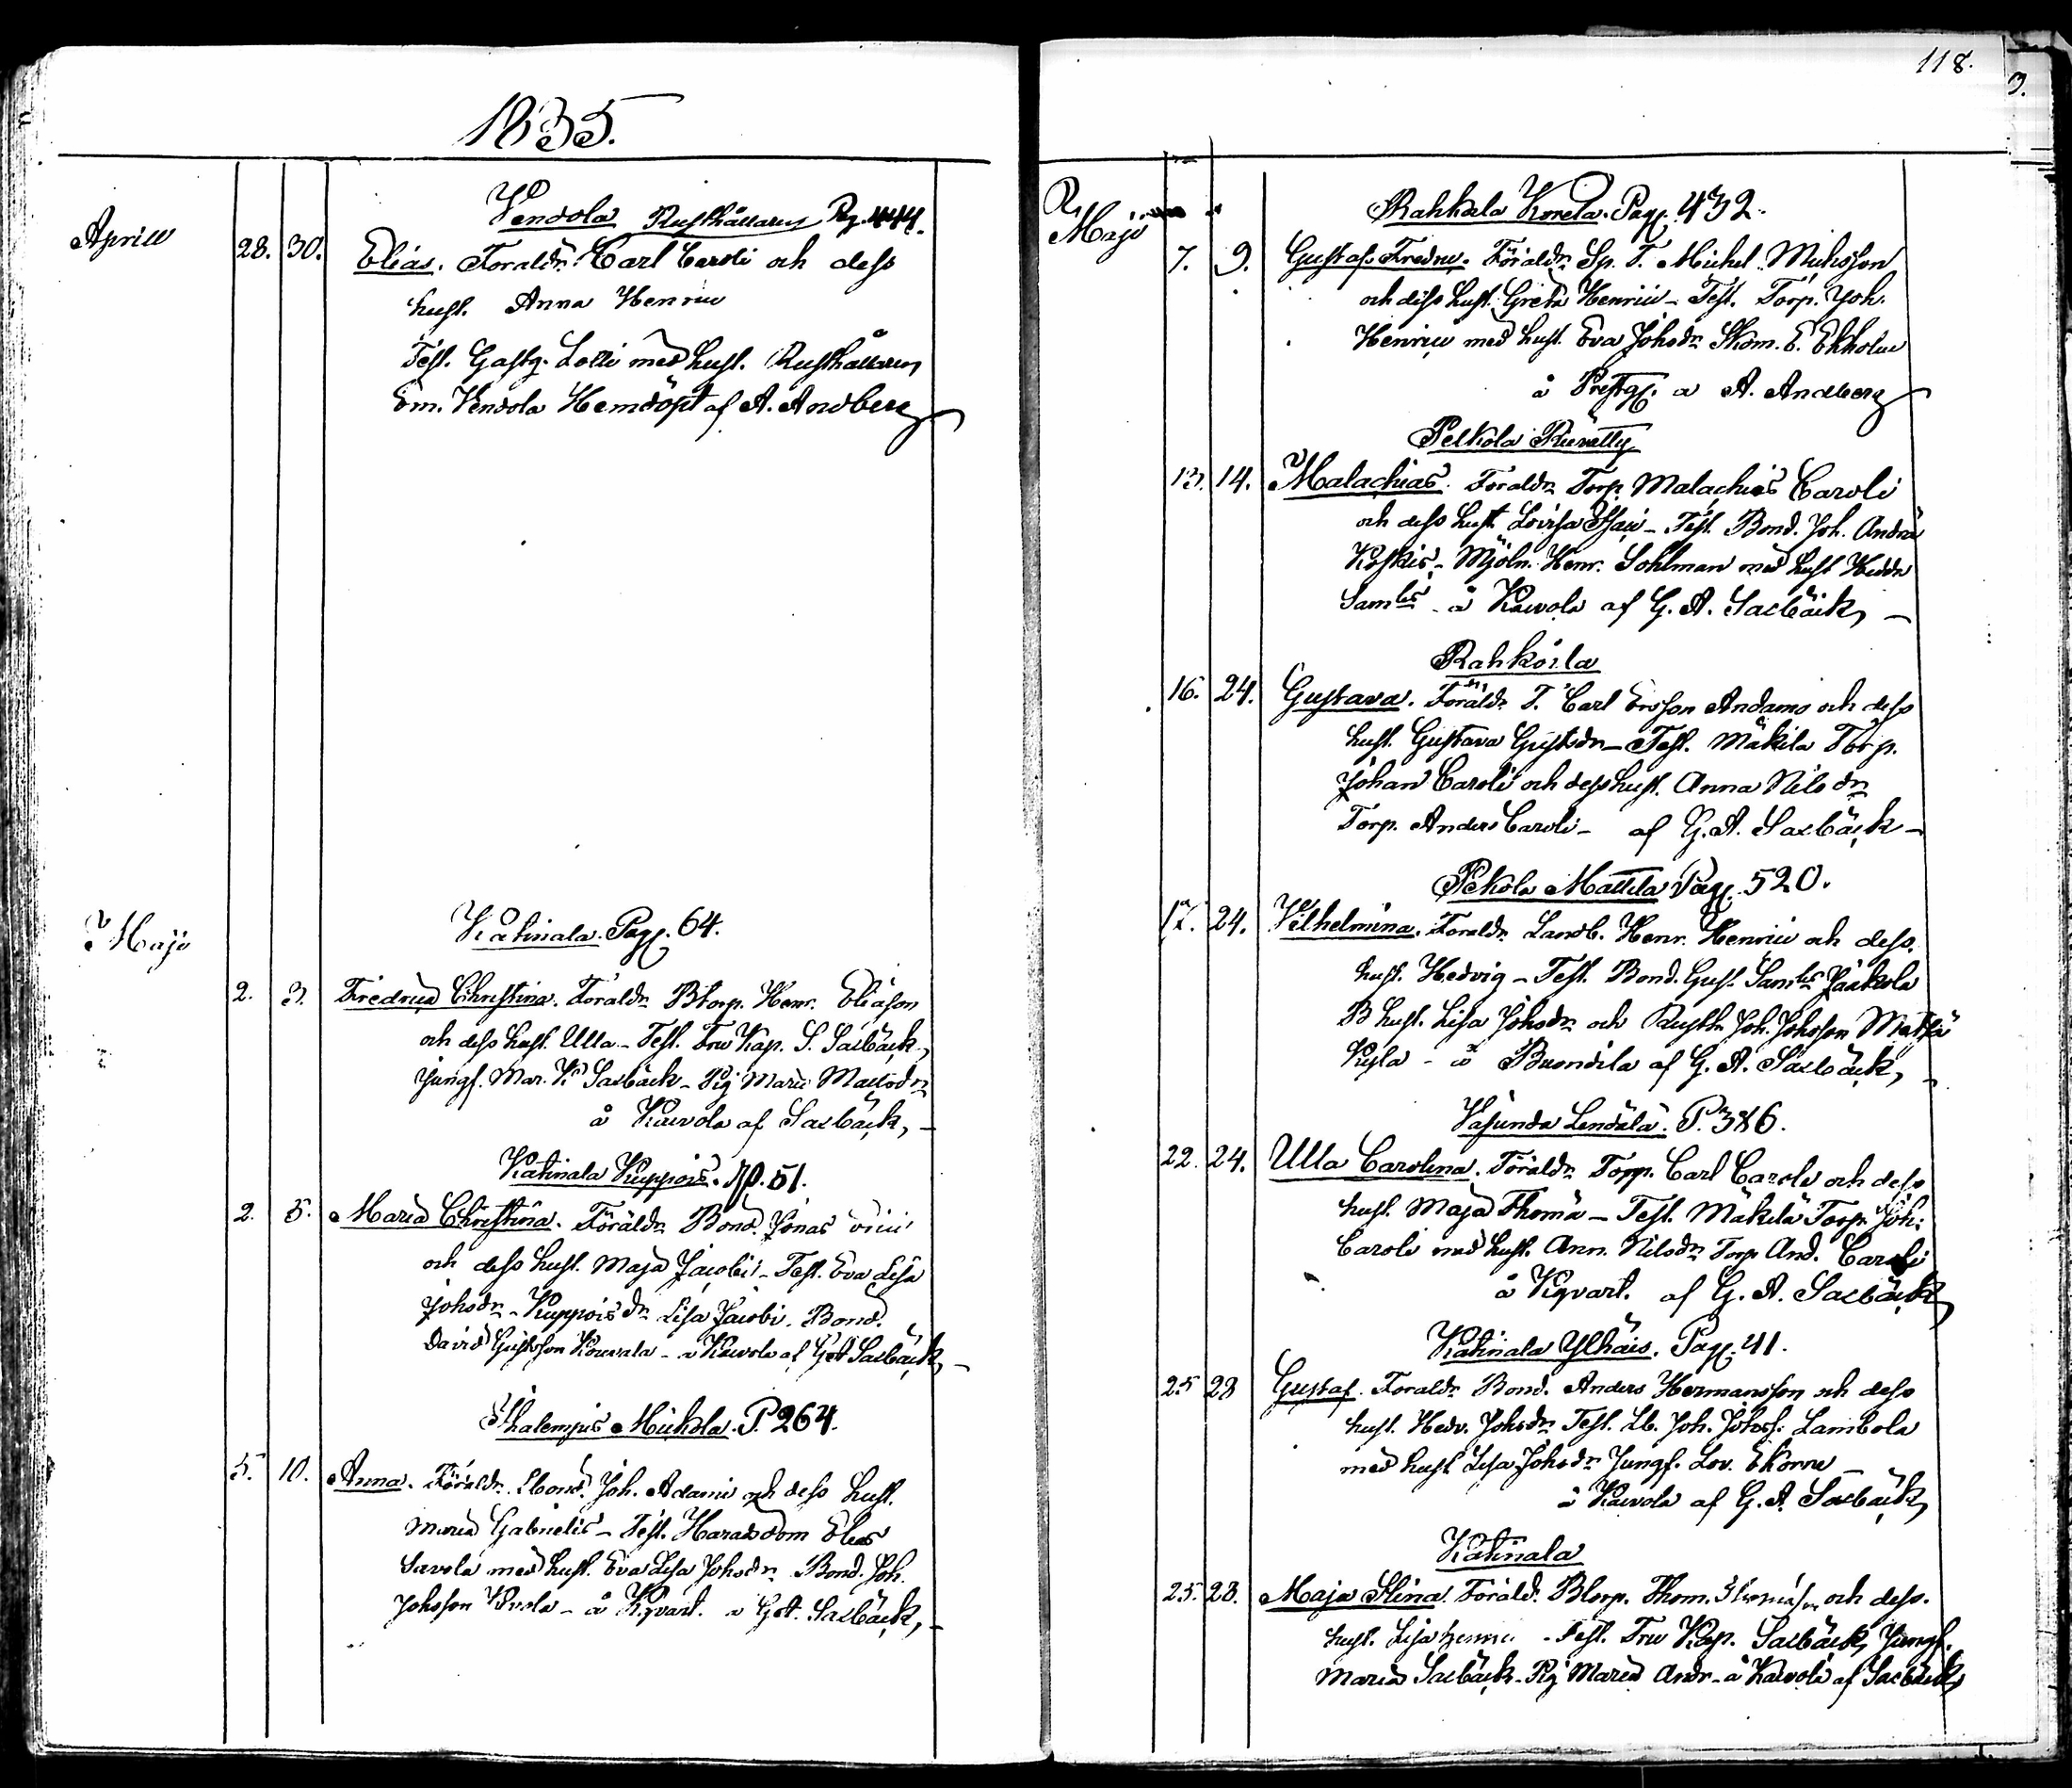 1835.
Aprill
Vendola Rusthållares Pag. 444.
28. 30. Elias. Föräldr. Carl Caroli och dess
hust. Anna Henrici
Test. Gästg. Lolli med hust. Rusthållaren
Em. Vendola Hemdöpt af A. Andberg
Majo
Katinala. Pag. 64.
2. 3. Fredrica Christina. Föräldr. Btorp. Henr. Eliasson
och dess hust. Ulla - Test. Fru Kap. S. Sacbäck,
Jungf. Mar. Sacbäck - Pig Maria
å Kaivola af Sacbäck,
Katinala Kuppois. P. 51.
2. 5. Maria Christina. Föräldr. Bond. Jonas
och dess hust. Maja Jacobi - Test. Eva Lisa
Johsdr - Kuppois dr Lisa Jacobi. Bond.
David Gustsson Kouvala - a Kaivola af Sacbäck,
Mickola. P. 264.
5. 10. Anna. Föräldr. Joh. Adami och dess hust.
Maria Gabrielis - Test. Häradsdom Elias
Savola med hust. Eva Lisa Johsdr Bond. Joh.
Johsson - å Kqvart. a Sacbäck,
118.
Majo
Rahkoila Korela. Pag. 432.
7. 9. Gustaf Fredric. Föräldr. Sp. T. Michel Michsson
och dess hust. Greta Henrici - Test. Torp. Joh.
Henrici med hust. Eva Johsdr Skom. E. Ekholm
å Prestg. a A. Andberg
Pelkola
13. 14. Malachias. Föräldr. Torp. Malachias Caroli
och dess hust. Lovisa - Test. Bond. Joh. Andrae
Koskis - Mjöln. Henr. Sohlman med hust Hedda
Samlis - å Kaivola af G. A. Sacbäck,
Rahkoila
16. 24. Gustava. Föräldr. T. Carl Ersson Andams och dess
hust. Gustava Gustsdr - Test. Mäkilä Torp.
Johan Caroli och dess hust. Anna Nilsdr
Torp. Anders Caroli - af G. A. Sacbäck -
Pekola Mattila Pag. 520.
17. 24. Vilhelmina. Föräldr. Landb. Henr. Henrici och dess
hust. Hedvig - Test. Bond. Gust. Samlis
B hust. Lisa Johsdr och Rusth. Joh. Johsson
- å af G. A. Sacbäck,
P. 386.
22. 24. Ulla Carolina. Föräldr. Torp. Carl Caroli och dess
hust. Maja Thomä - Test. Mäkilä Torp. Joh.
Caroli med hust. Ann. Nilsdr Torp. And. Caroli
å Kqvart. af G. A. Sacbäck
Katinala Ylhäis. Pag. 41.
25 28 Gustaf. Föräldr. Bond. Anders Hermansson och dess
hust. Hedv. Johsdr Test. Lb. Joh. Johss. Lambola
med hust Lisa Johsdr Jungf. Lov. Ekorre -
å Kaivola af G. A. Sacbäck,
Katinala
25. 28. Maja Stina. Föräld. Btorp. Thom. Thomasson och dess.
hust. Lisa - Test. Fru Kap. Sacbäck, Jungf.
Maria Sacbäck - Pig Maria Andr - å Kaivola af Sacbäck,